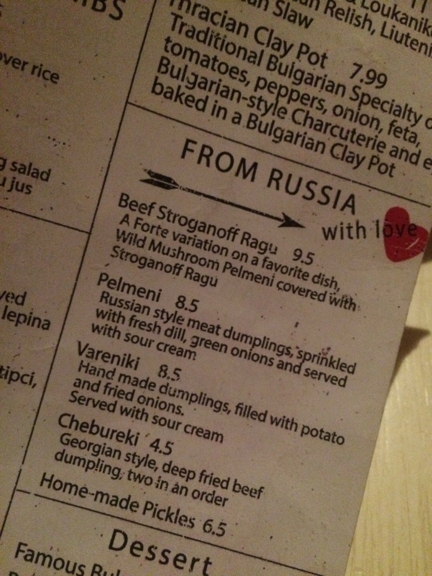 BS
an Slaw
an Relish, Liuteni
Loukanik
Thracian Clay Pot 7.99
Traditional Bulgarian Specialty o
tomatoes, peppers, onion, feta,
Bulgarian-style Charcuterie and e
baked in a Bulgarian Clay Pot
over rice
g salad
u jus
ved
lepina
tipci,
FROM RUSSIA
with love
Beef Stroganoff Ragu 9.5
A Forte variation on a favorite dish,
Wild Mushroom Pelmeni covered with
Stroganoff Ragu
Pelmeni 8.5
Russian style meat dumplings, sprinkled
with fresh dill, green onions and served
with sour cream
Vareniki 8.5
Hand made dumplings, filled with potato
and fried onions.
Served with sour cream
Chebureki 4.5
Georgian style, deep fried beef
dumpling, two in an order
Home-made Pickles 6.5
Dessert
Famous Bul